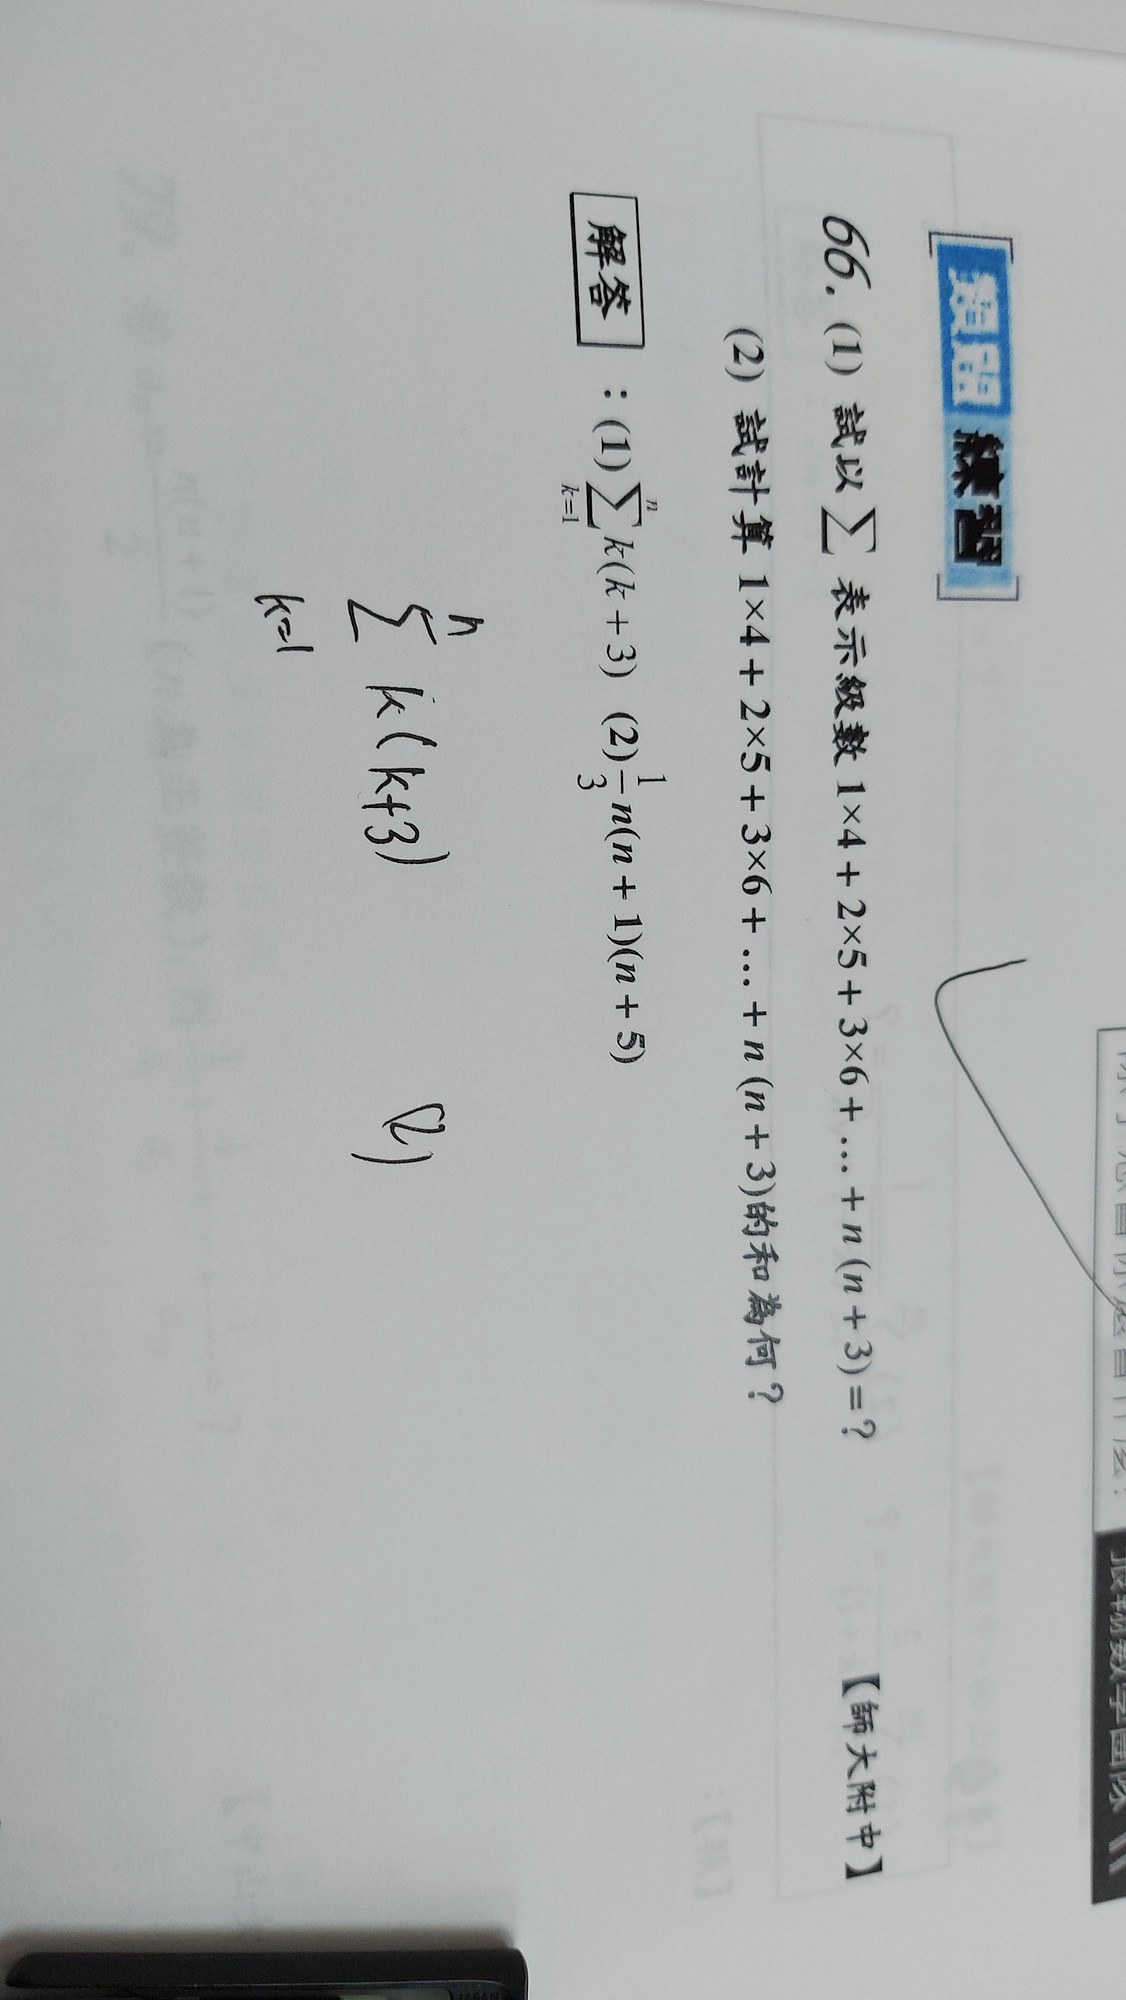 類題 練習
66. (1) 試以 ∑ 表示級數 1×4 + 2×5 + 3×6 + … + n (n + 3) = ? 【師大附中】
(2) 試計算 1×4 + 2×5 + 3×6 + … + n (n + 3)的和為何？
解答 : (1) ∑_{k=1}^{n} k(k + 3) (2) 1/3 n(n + 1)(n + 5)
∑_{k=1}^{n} k (k+3) (2)